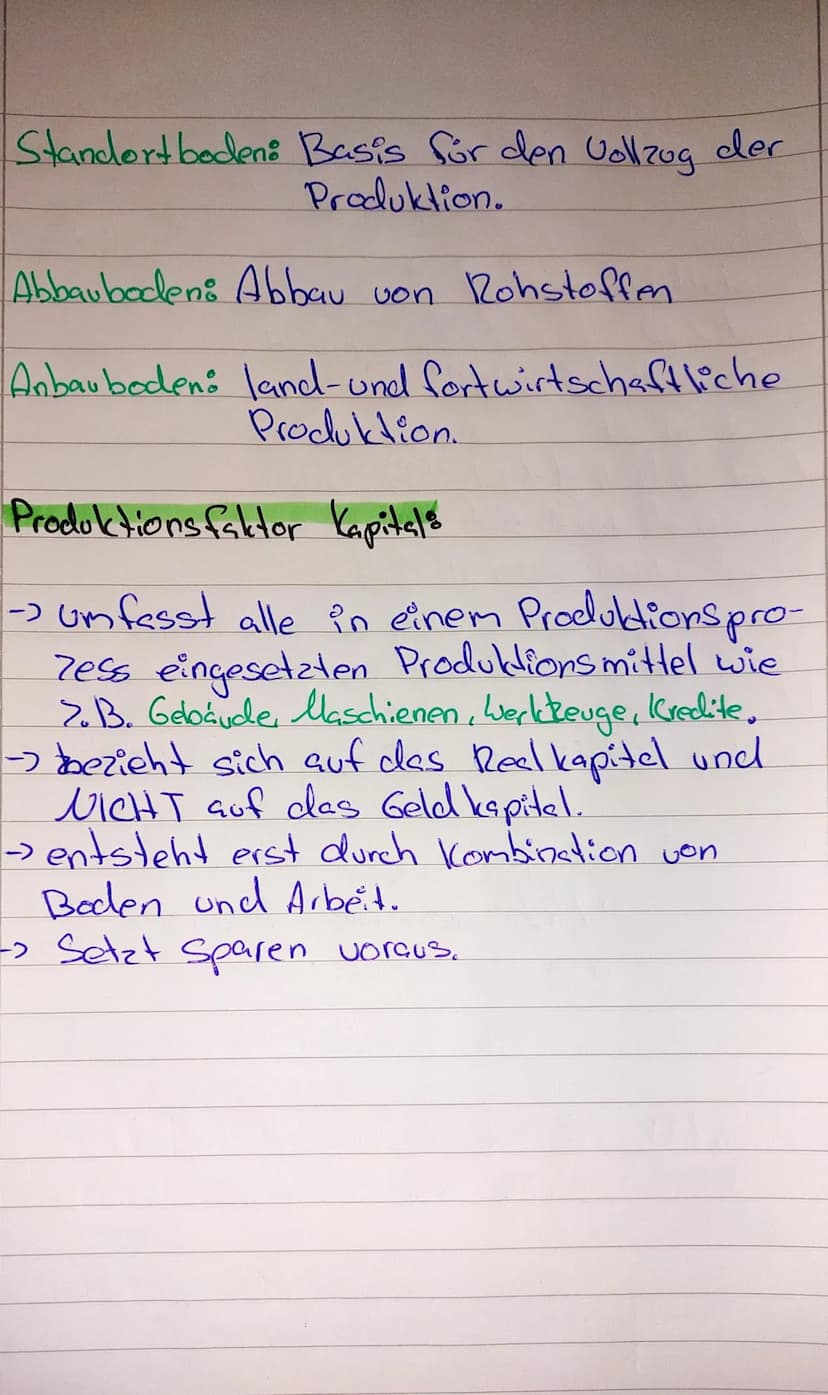 Standortboden: Basis für den Vollzug der
Produktion.
Abbauboden: Abbau von Rohstoffen
Anbauboden: land- und fortwirtschaftliche
Produktion.
Produktionsfaktor Kapital:
-> umfasst alle in einem Produktionspro-
zess eingesetzten Produktionsmittel wie
z.B. Gebäude, Maschienen, Werkzeuge, Kredite.
-> bezieht sich auf das Realkapital und
NICHT auf das Geldkapital.
-> entsteht erst durch Kombination von
Boden und Arbeit.
-> Setzt Sparen voraus.